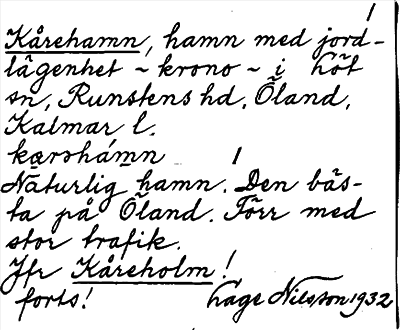 1
Kårehamn, hamn med jord-
lägenhet ~ krono ~ i Löt
sn, Runstens hd, Öland,
Kalmar l.
kɷrshámn 1
Naturlig hamn. Den bäs-
ta på Öland. Förr med
stor trafik.
Jfr Kåreholm!
forts! Lage Nilsson 1932